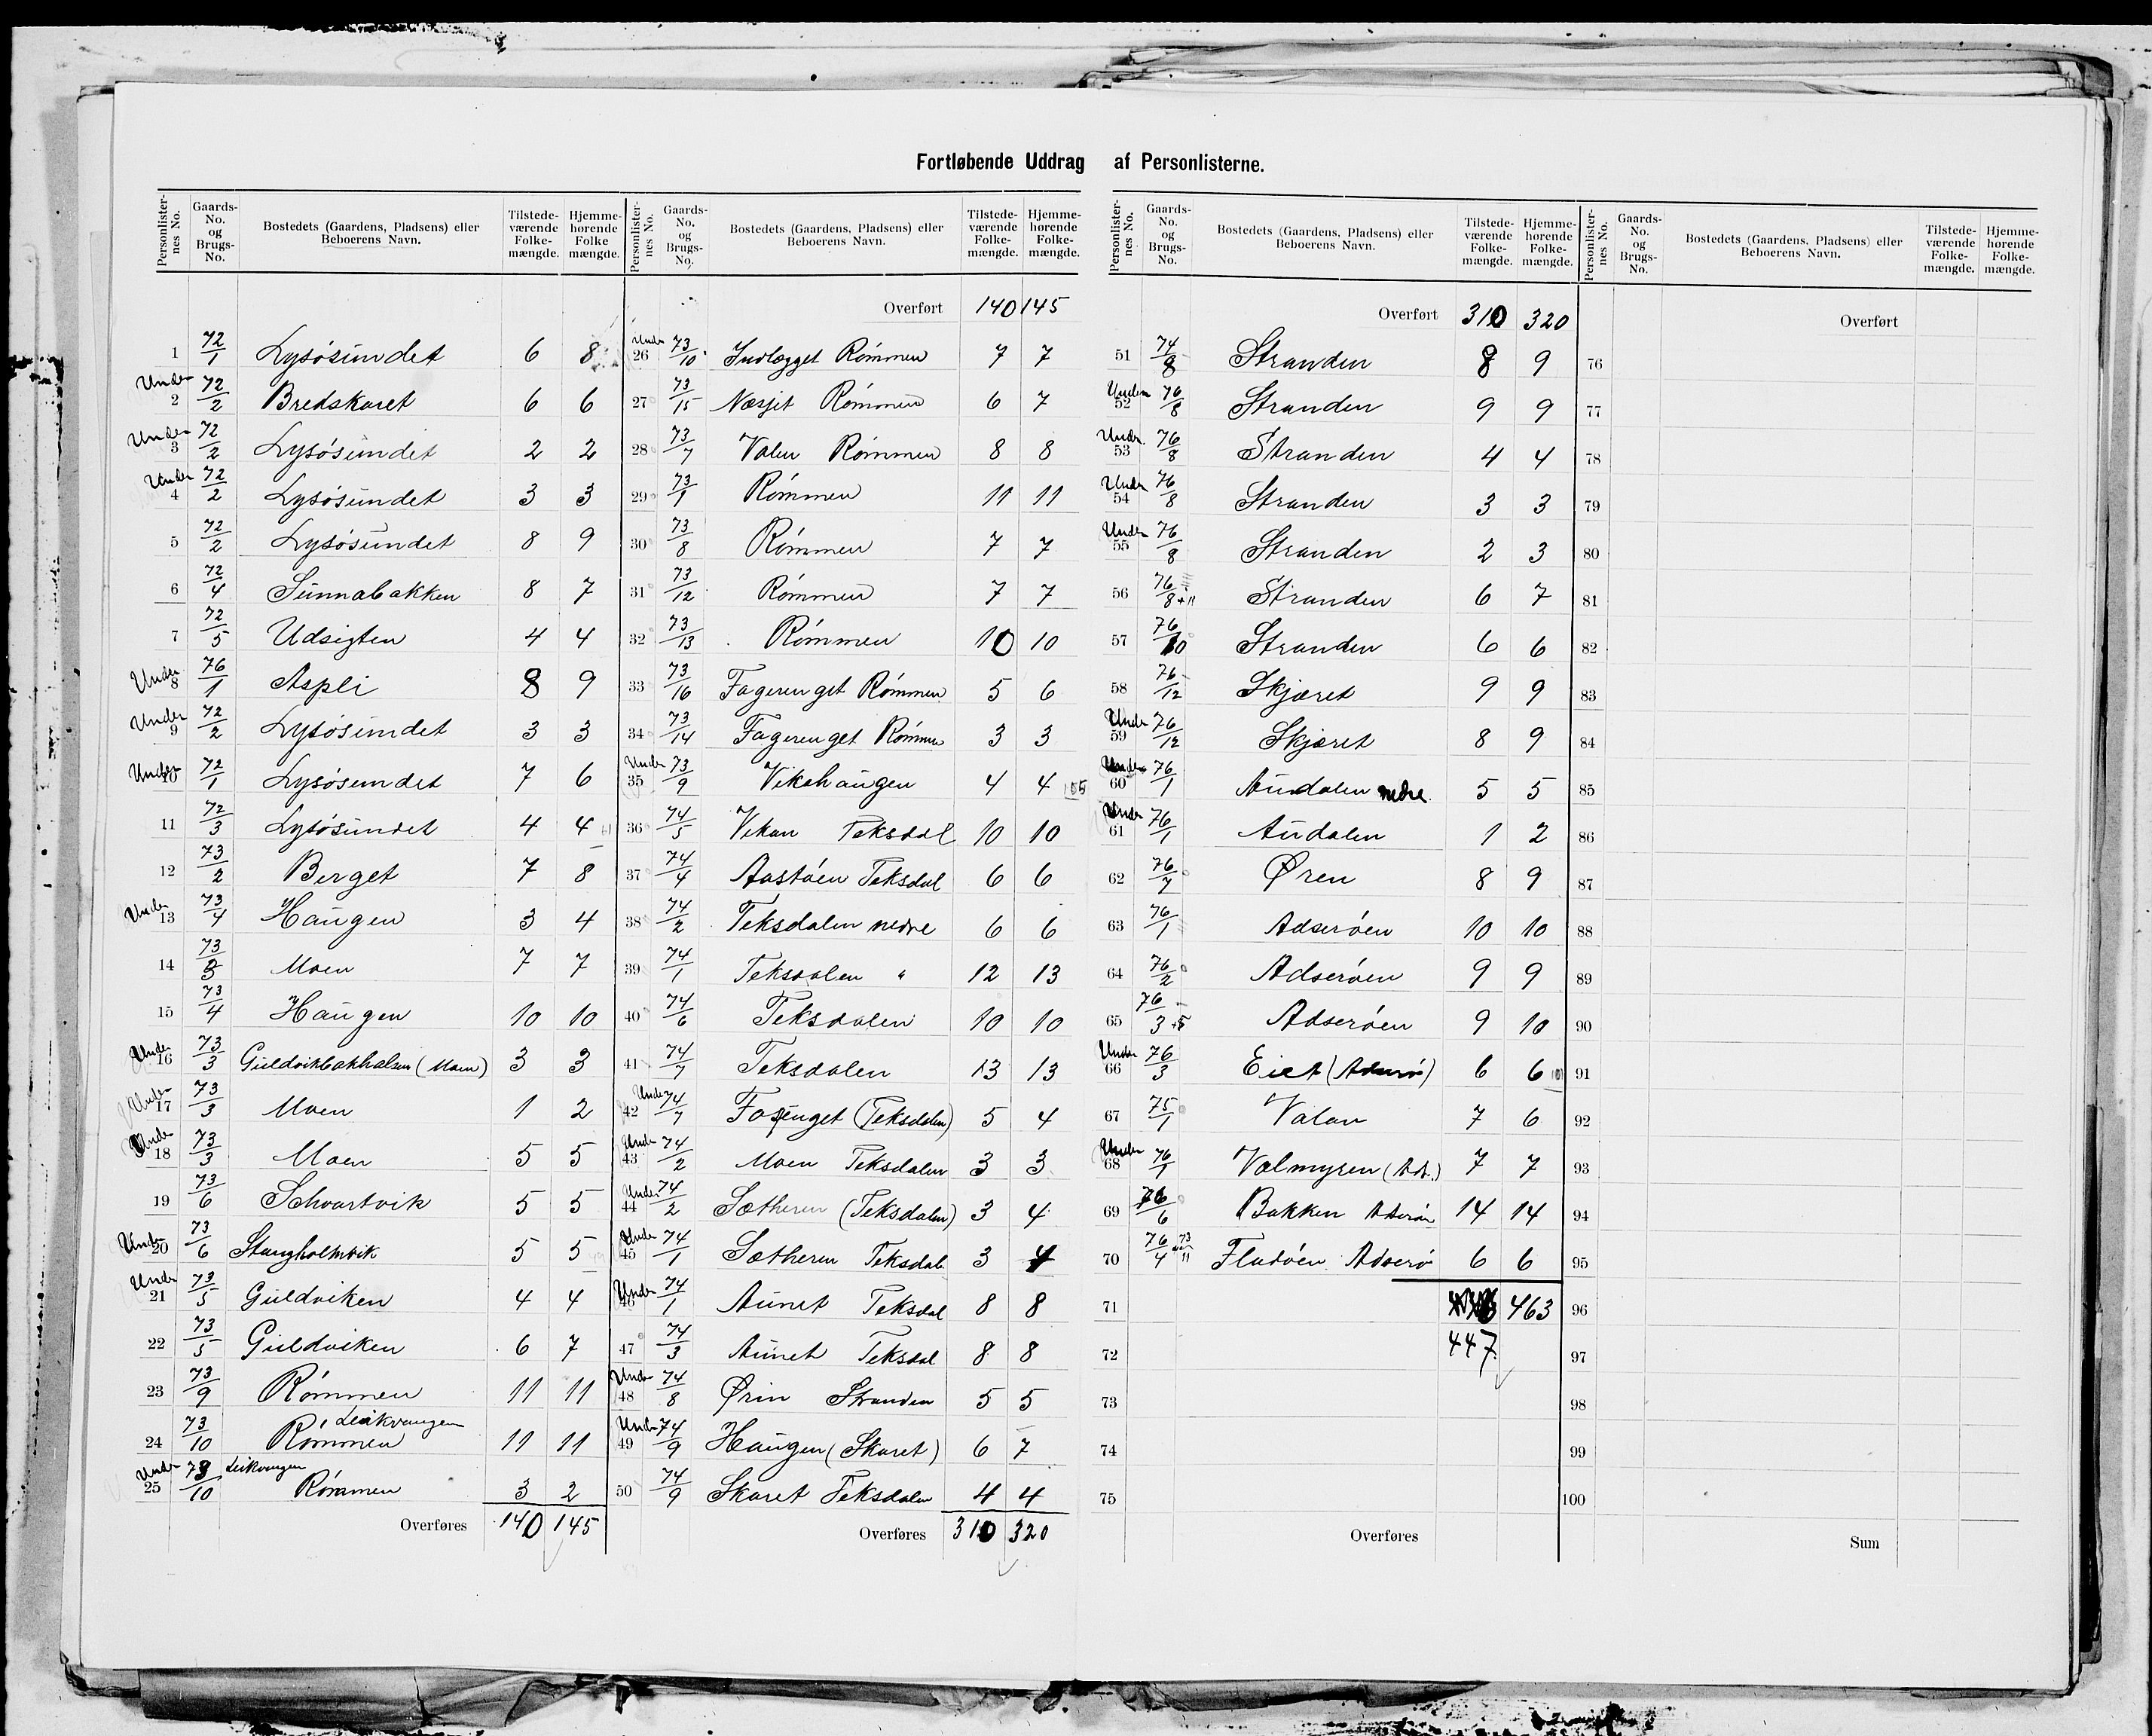 Fortløbende Uddrag af Personlisterne.
Personlister-nes No. Gaards-No. og Brugs-No. Bostedets (Gaardens, Pladsens) eller Beboerens Navn. Tilstede-værende Folke-mængde. Hjemme-hørende Folke mængde.
1 72/1 Lysøsundet 6 8
Under 2 72/2 Bredskaret 6 6
Under 3 72/2 Lysøsundet 2 2
Under 4 72/2 Lysøsundet 3 3
5 72/2 Lysøsundet 8 9
6 72/4 Sunnabakken 8 7
7 72/5 Udsigten 4 4
Under 8 76/1 Aspli 8 9
Under 9 72/2 Lysøsundet 3 3
Under 10 72/1 Lysøsundet 7 6
11 72/3 Lysøsundet 4 4
12 73/2 Berget 7 8
Under 13 73/4 Haugen 3 4
14 73/3 Moen 7 7
15 73/4 Haugen 10 10
Under 16 73/3 Guldvikbakhalsen (Moen) 3 3
Under 17 73/3 Moen 1 2
Under 18 73/3 Moen 5 5
19 73/6 Schvartvik 5 5
Under 20 73/6 Stangholmvik 5 5
Under 21 73/5 Guldviken 4 4
22 73/5 Guldviken 6 7
23 73/9 Rømmen 11 11
24 73/10 Leikvangen Rømmen 11 11
Under 25 73/10 Leikvangen Rømmen 3 2
Overføres 140 145
Personlister-nes No. Gaards-No. og Brugs-No. Bostedets (Gaardens, Pladsens) eller Beboerens Navn. Tilstede-værende Folke-mængde. Hjemme-hørende Folke-mængde.
Overført 140 145
Under 26 73/10 Indlægget Rømmen 7 7
27 73/15 Næsset Rømmen 6 7
28 73/7 Valen Rømmen 8 8
29 73/1 Rømmen 11 11
30 73/8 Rømmen 7 7
31 73/12 Rømmen 7 7
32 73/13 Rømmen 10 10
33 73/16 Fagerenget Rømmen 5 6
34 73/14 Fagerenget Rømmen 3 3
Under 35 73/9 Vikahaugen 4 4 105
36 74/5 Vikan Teksdal 10 10
37 74/4 Aastøen Teksdal 6 6
38 74/2 Teksdalen nedre 6 6
39 74/1 Teksdalen " 12 13
40 74/6 Teksdalen 10 10
41 74/7 Teksdalen 13 13
Under 42 74/7 Fosenget (Teksdalen) 5 4
Under 43 74/2 Moen Teksdalen 3 3
Under 44 74/2 Sætheren (Teksdalen) 3 4
Under 45 74/1 Sætheren Teksdal 3 4
Under 46 74/1 Aunet Teksdal 8 8
47 74/3 Aunet Teksdal 8 8
Under 48 74/8 Ørin Stranden 5 5
Under 49 74/9 Haugen (Skaret) 6 7
50 74/9 Skaret Teksdalen 4 4
Overføres 310 320
Personlister-nes No. Gaards-No. og Brugs-No. Bostedets (Gaardens, Pladsens) eller Beboerens Navn. Tilstede-værende Folke-mængde. Hjemme-hørende Folke-mængde.
Overført 310 320
51 74/8 Stranden 8 9
Under 52 76/8 Stranden 9 9
Under 53 76/8 Stranden 4 4
Under 54 76/8 Stranden 3 3
Under 55 76/8 Stranden 2 3
56 76/8+11 Stranden 6 7
57 76/10 Stranden 6 6
58 76/12 Skjæret 9 9
Under 59 76/12 Skjæret 8 9
Under 60 76/1 Audalen nedre 5 5
Under 61 76/1 Audalen 1 2
62 76/7 Øren 8 9
63 76/1 Adserøen 10 10
64 76/2 Adserøen 9 9
65 76/3+5 Adserøen 9 10
Under 66 76/3 Eiet (Adserø) 6 6
67 75/1 Valan 7 6
Under 68 76/1 Valmyren (Ad.) 7 7
69 76/6 Bakken Adserøen 14 14
70 76/4 73/11 Fladøen Adserø 6 6
71 463
72 447
73
74
75
Overføres
Personlister-nes No. Gaards-No. og Brugs-No. Bostedets (Gaardens, Pladsens) eller Beboerens Navn. Tilstede-værende Folke-mængde. Hjemme-hørende Folke-mængde.
Overført
76
77
78
79
80
81
82
83
84
85
86
87
88
89
90
91
92
93
94
95
96
97
98
99
100
Sum